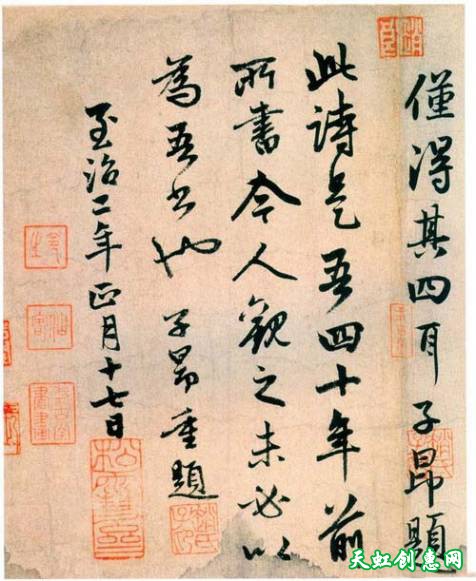 僅得其四耳子昂題
此詩是吾四十年前
所書今人觀之未必以
為吾書也子昂重題
至治二年正月十七日
趙
松雪齋
天虹创意网